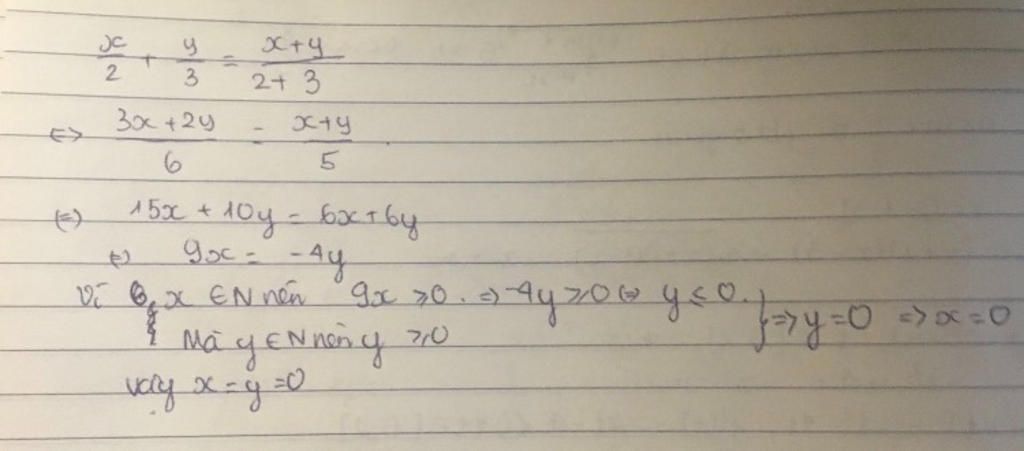 x/2 + y/3 = x+y/2+3
<=> 3x+2y/6 = x+y/5
<=> 15x + 10y = 6x+6y
<=> 9x = -4y
Vì x ∈ N nên 9x ≥ 0. => -4y ≥ 0 <=> y ≤ 0. } => y = 0 => x = 0
Mà y ∈ N nên y ≥ 0
vậy x = y = 0